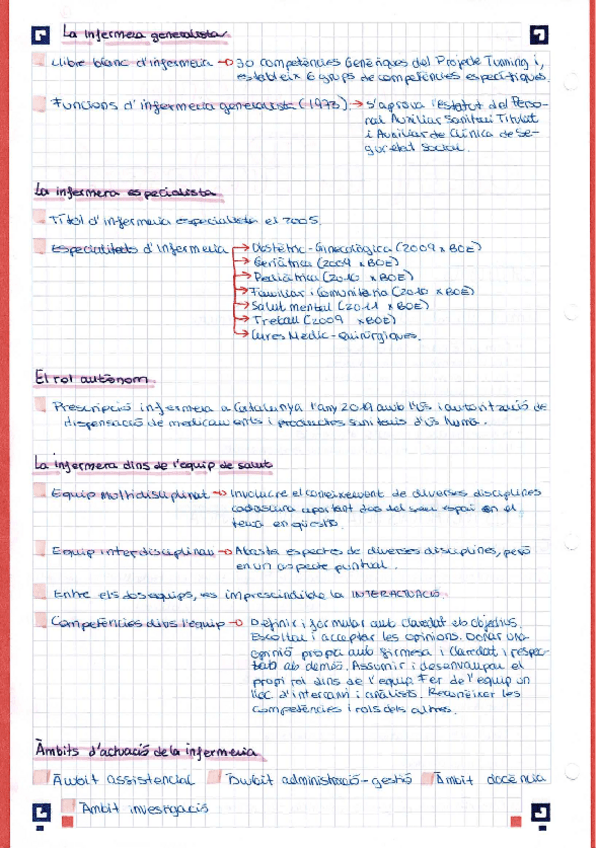 La infermera generalista
Llibre blanc d'infermeria → 30 competències Genèriques del Projecte Tunning i,
estableix 6 grups de competències específiques.
Funcions d'infermeria generalista (1973) → S'aprova l'estatut del Perso-
nal Auxiliar Sanitari Titulat
i Auxiliar de Clínica de Se-
guretat Social.
La infermera especialista
Títol d'infermeria especialista el 2005.
Especialitats d'Infermeria → Obstètric-Ginecològica (2009 x BOE)
→ Geriàtrica (2009 x BOE)
→ Pediàtrica (2010 x BOE)
→ Familiar i Comunitària (2010 x BOE)
→ Salut mental (2011 x BOE)
→ Treball (2009 x BOE)
→ Cures Mèdic-Quirúrgiques.
El rol autònom
Prescripció infermera a Catalunya l'any 2019 amb l'ús i autorització de
dispensació de medicaments i productes sanitaris d'ús humà.
La infermera dins de l'equip de salut
Equip multidisciplinat → Involucre el coneixement de diverses disciplines
cadascuna aportant des del seu espai en el
tema en qüestió.
Equip interdisciplinau → Abasta aspectes de diverses disciplines, però
en un aspecte puntual.
Entre els dos equips, es imprescindible la INTERACTUACIÓ.
Competències dins l'equip → Definir i formular amb claredat els objectius.
Escoltar i acceptar les opinions. Donar una
opinió propia amb firmesa i claredat i respec-
tab als demés. Assumir i desenvolupar el
propi rol dins de l'equip. Fer de l'equip un
lloc d'intercanvi i anàlisis. Reconèixer les
competències i rols dels altres.
Àmbits d'actuació de la infermeria
Àmbit assistencial Àmbit administració-gestió Àmbit docència
Àmbit investigació